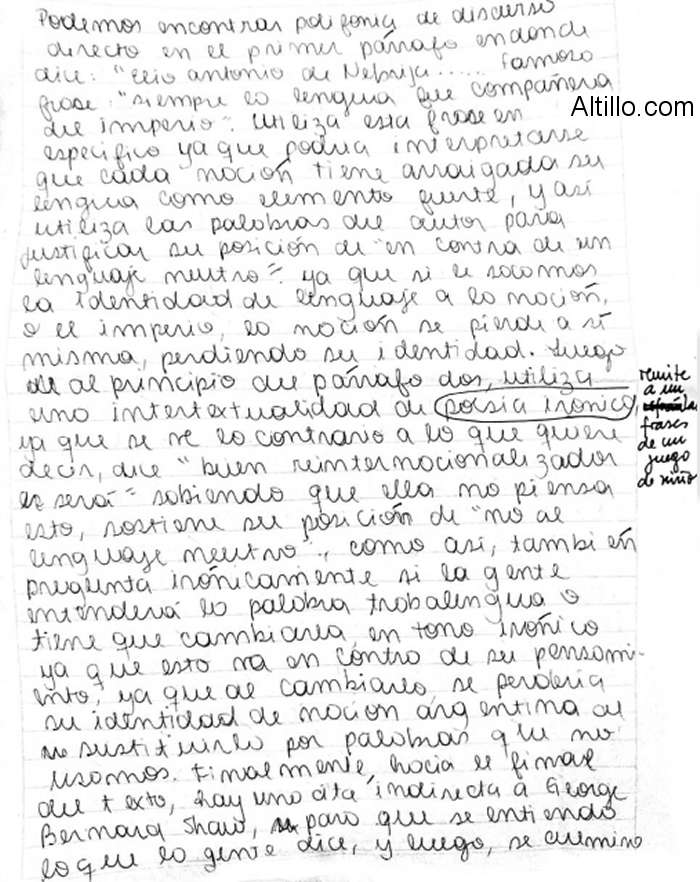 Podemos encontrar polifonía de discurso
directo en el primer párrafo en donde
dice: "Elio antonio de Nebrija..... famosa
frase: "siempre la lengua fue compañera
del imperio". Utiliza esta frase en
Altillo.com
especifico ya que podria interpretarse
que cada nación tiene arraigada su
lengua como elemento fuerte, y así
utiliza las palabras del autor para
justificar su posición de "en contra de un
lenguaje neutro" ya que si le sacamos
la identidad de lenguaje a la nación,
o el imperio, la nación se pierde a sí
misma, perdiendo su identidad. Luego
al principio del párrafo dos, utiliza
una intertextualidad de poesia irónica,
remite
a un
frases
de un
juego
de niño
ya que se ve lo contrario a lo que quiere
decir, dice "buen reinternacionalizador
será" sabiendo que ella no piensa
esto, sostiene su posición de "no al
lenguaje neutro"., como asi, también
pregunta irónicamente si la gente
entenderá la palabra trabalengua o
tiene que cambiarla, en tono irónico
ya que esto va en contra de su pensami-
ento, ya que al cambiarla, se perdería
su identidad de nación argentina al
sustituirla por palabras que no
usamos. Finalmente, hacia el final
del texto, hay una cita indirecta a George
Bernard Shaw, para que se entienda
lo que la gente dice, y luego, se culmina